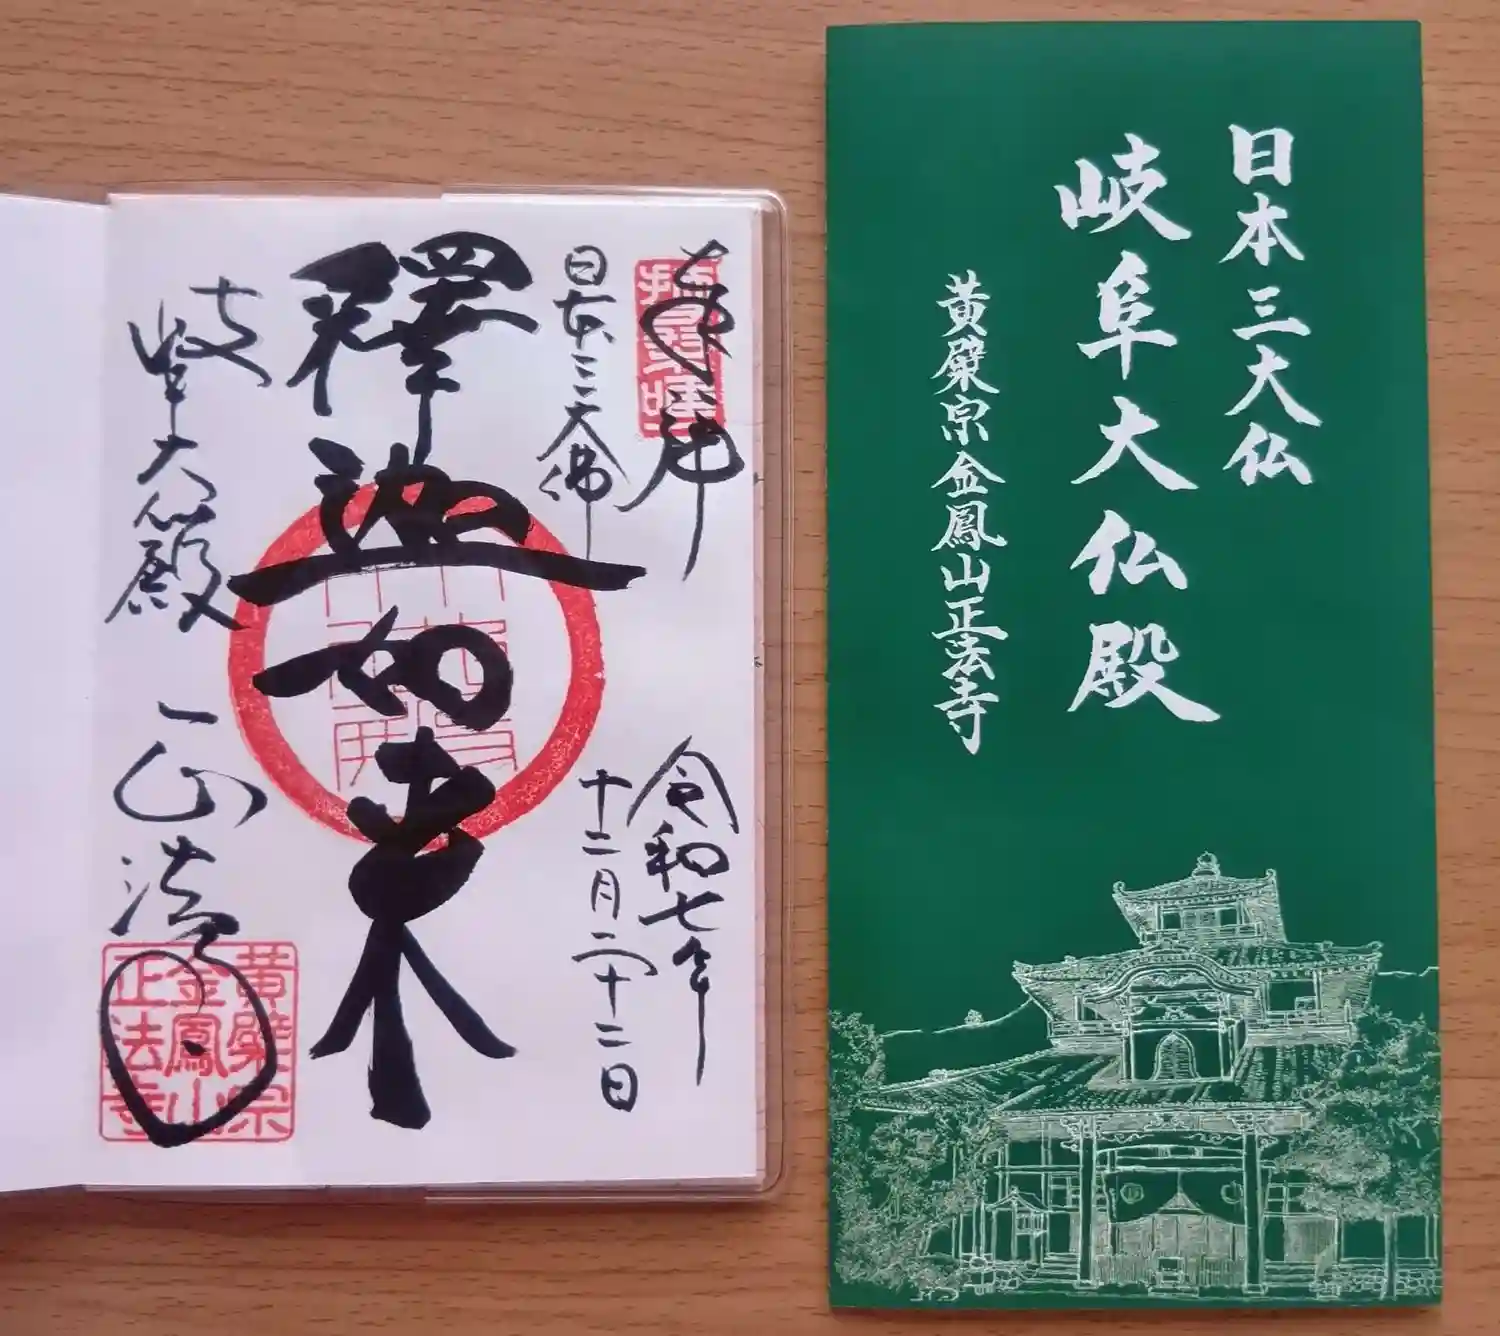 奉拝
日本三大佛
釋迦如来
令和七年
十二月二十二日
岐阜大仏殿
黄檗宗
金鳳山
正法寺
日本三大仏
岐阜大仏殿
黄檗宗金鳳山正法寺